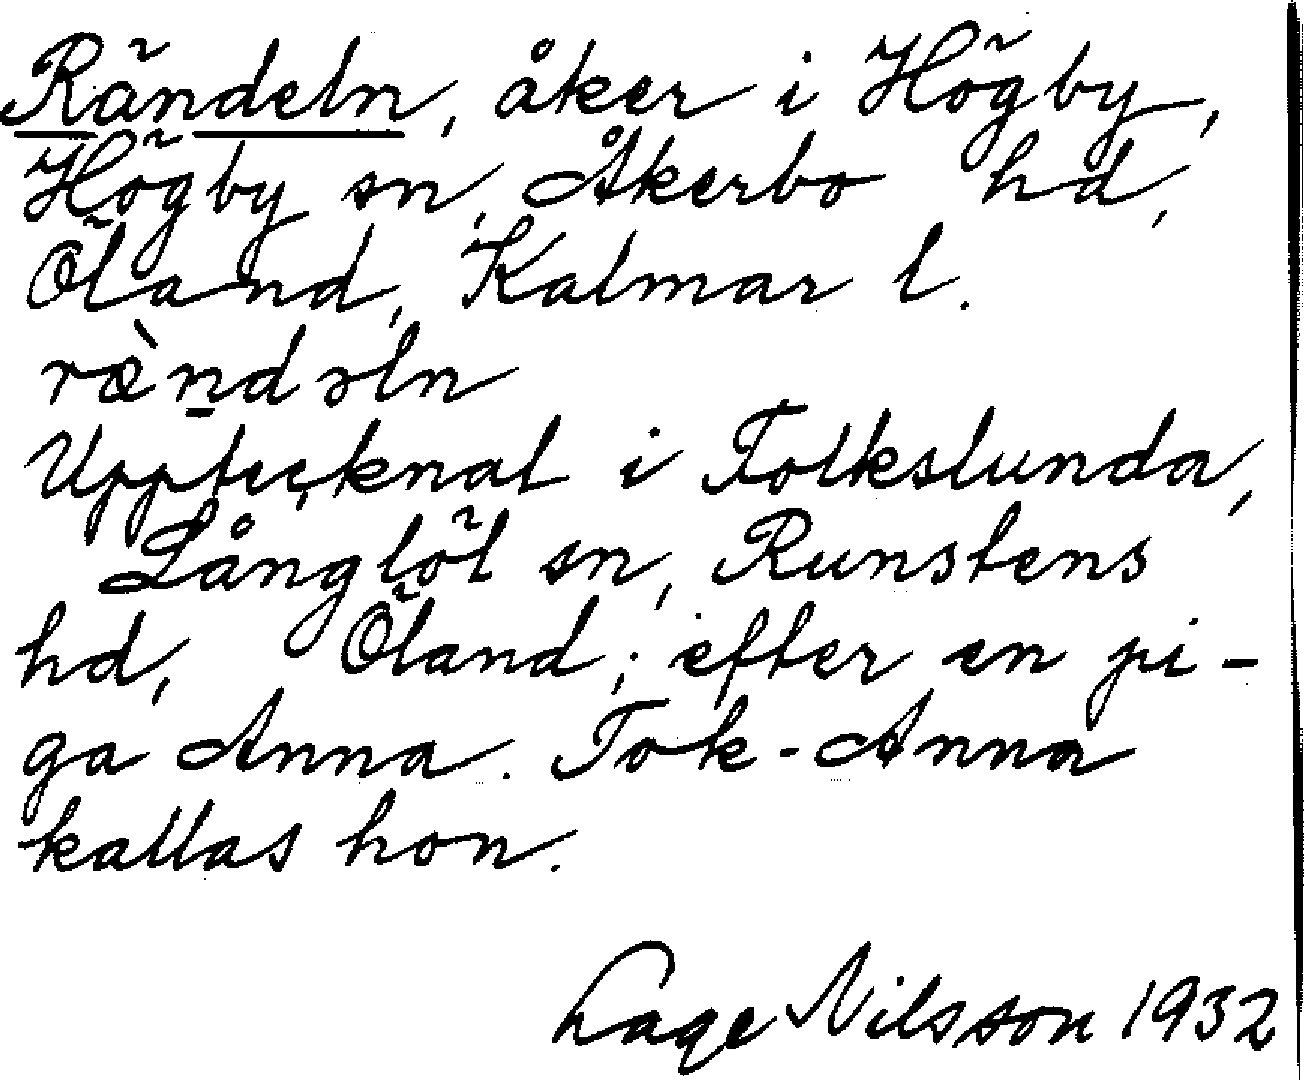 Rändeln, åker i Högby,
Högby sn, Åkerbo hd,
Öland, Kalmar l.
ræ̀ndəln
Upptecknat i Folkslunda,
Långlöt sn, Runstens
hd, Öland; efter en pi-
ga Anna. Tok-Anna
kallas hon.
Lage Nilsson 1932